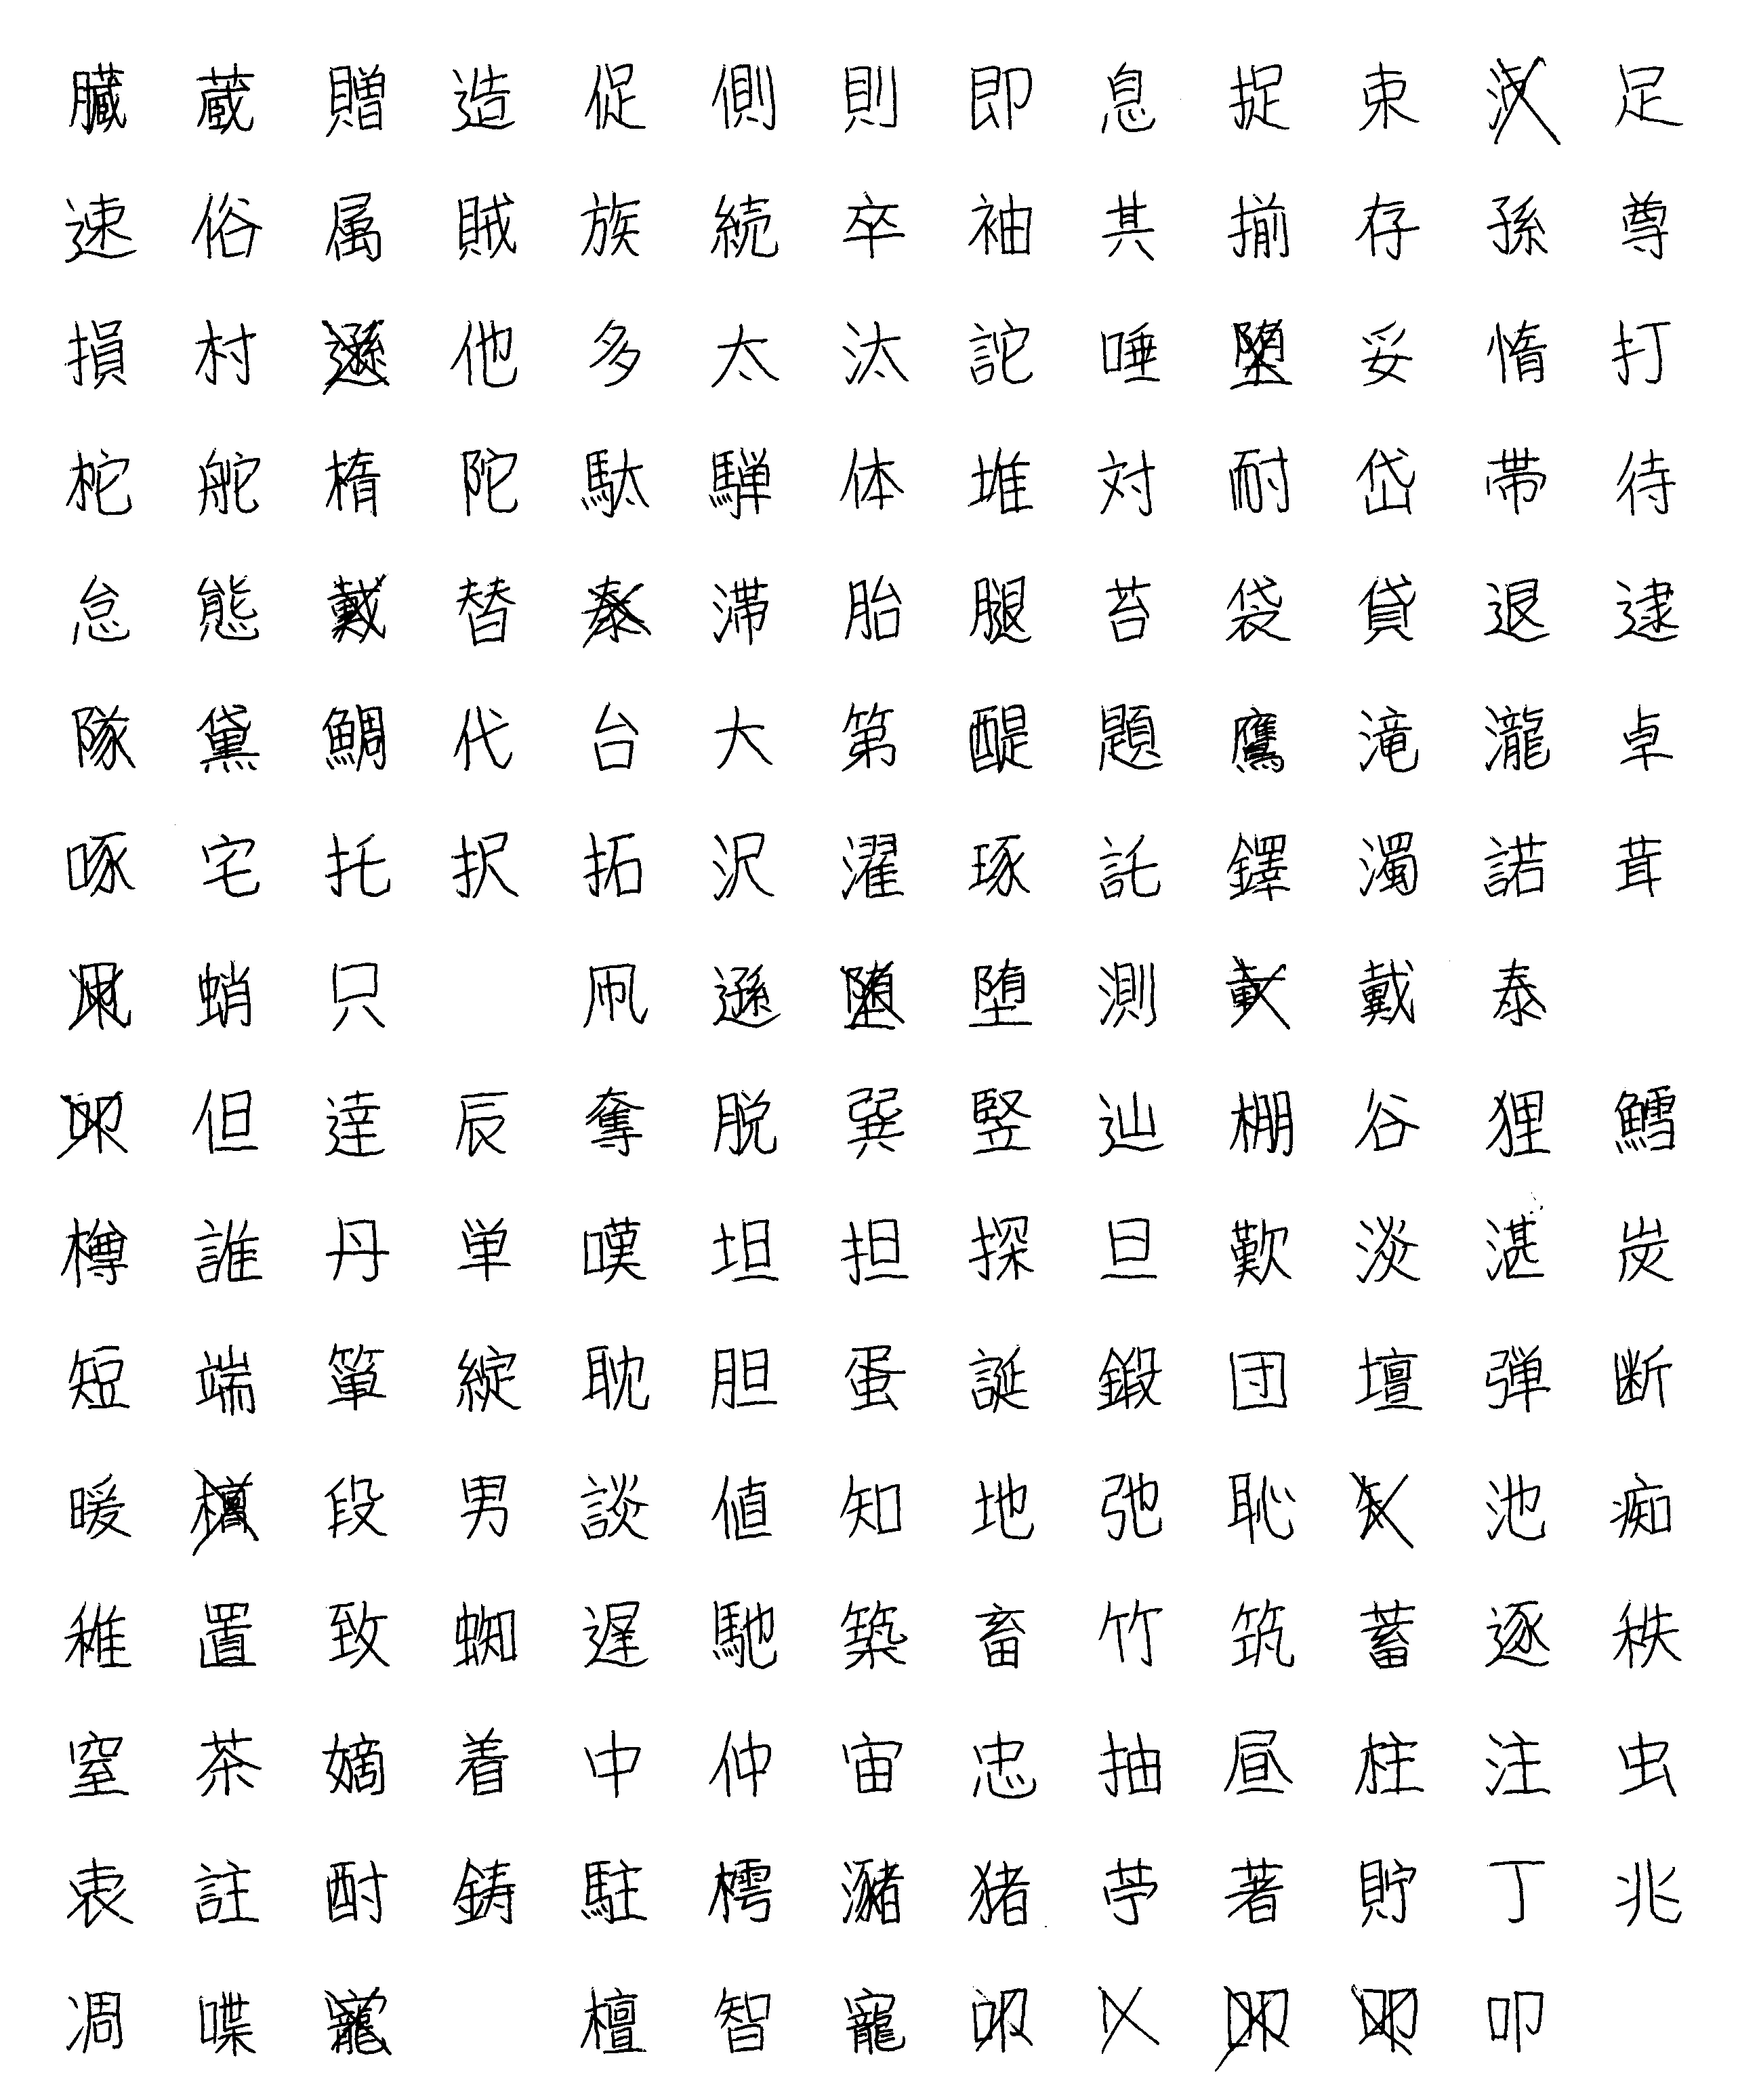 臓蔵贈造促側則即息捉束足
速俗属賊族続卒袖共揃存孫尊
損村他多太汰詑唾妥惰打
柁舵楕陀駄騨体堆対耐岱帯待
怠態替滞胎腿苔袋貸退逮
隊黛鯛代台大第醍題鷹滝瀧卓
啄宅托択拓沢濯琢託鐸濁諾茸
蛸只凧遜堕測戴泰
但達辰奪脱巽竪辿棚谷狸鱈
樽誰丹単嘆坦担探旦歎淡湛炭
短端箪綻耽胆蛋誕鍛団壇弾断
暖段男談値知地弛恥池痴
稚置致蜘遅馳築畜竹筑蓄逐秩
窒茶嫡着中仲宙忠抽昼柱注虫
衷註酎鋳駐樗瀦猪苧著貯丁兆
凋喋檀智寵叩